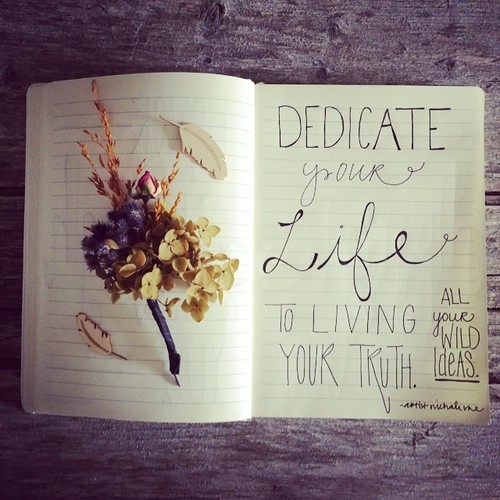 DEDICATE
your
Life
TO LIVING
YOUR TRUTH.
ALL
your
WILD
IdeAS.